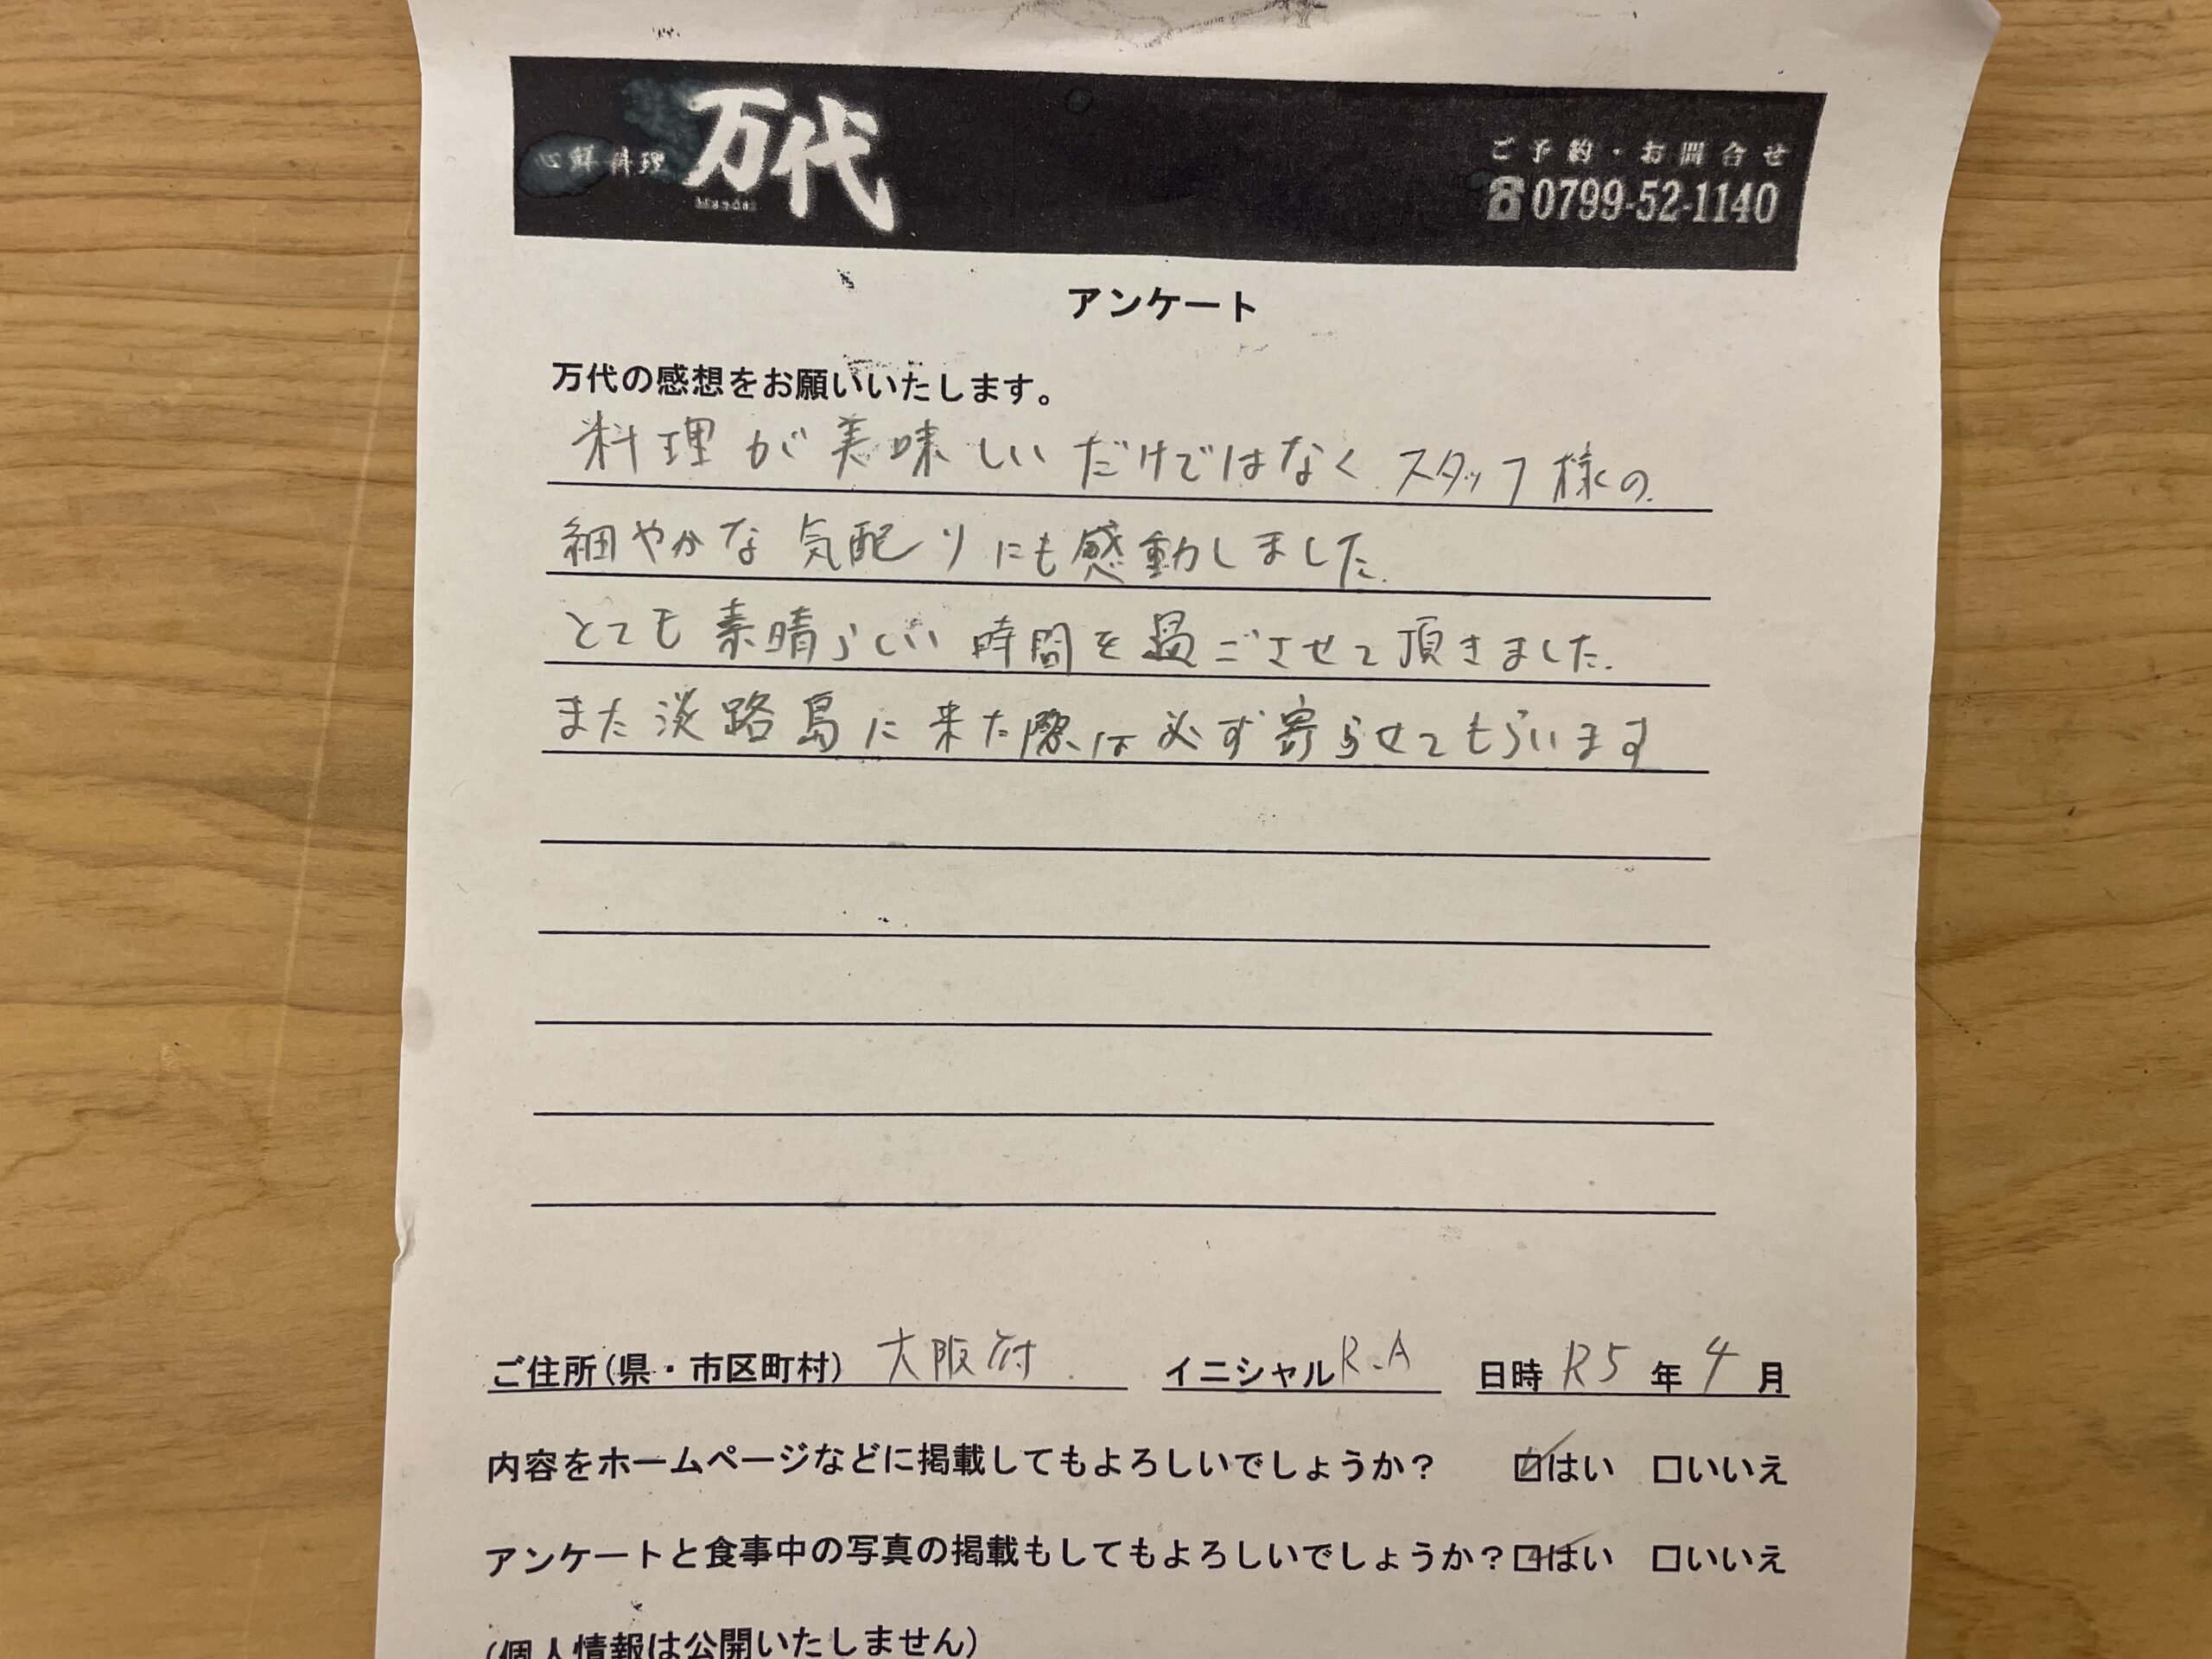 心鮮料理 万代
Mandai
ご予約・お問合せ
☎0799-52-1140
アンケート
万代の感想をお願いいたします。
料理が美味しいだけではなく スタッフ様の
細やかな気配りにも感動しました.
とても素晴らしい時間を過ごさせて頂きました.
また淡路島に来た際は必ず寄らせてもらいます
ご住所(県・市区町村) 大阪府 イニシャル R.A 日時 R5年 4月
内容をホームページなどに掲載してもよろしいでしょうか? ☑はい □いいえ
アンケートと食事中の写真の掲載もしてもよろしいでしょうか? ☑はい □いいえ
(個人情報は公開いたしません)